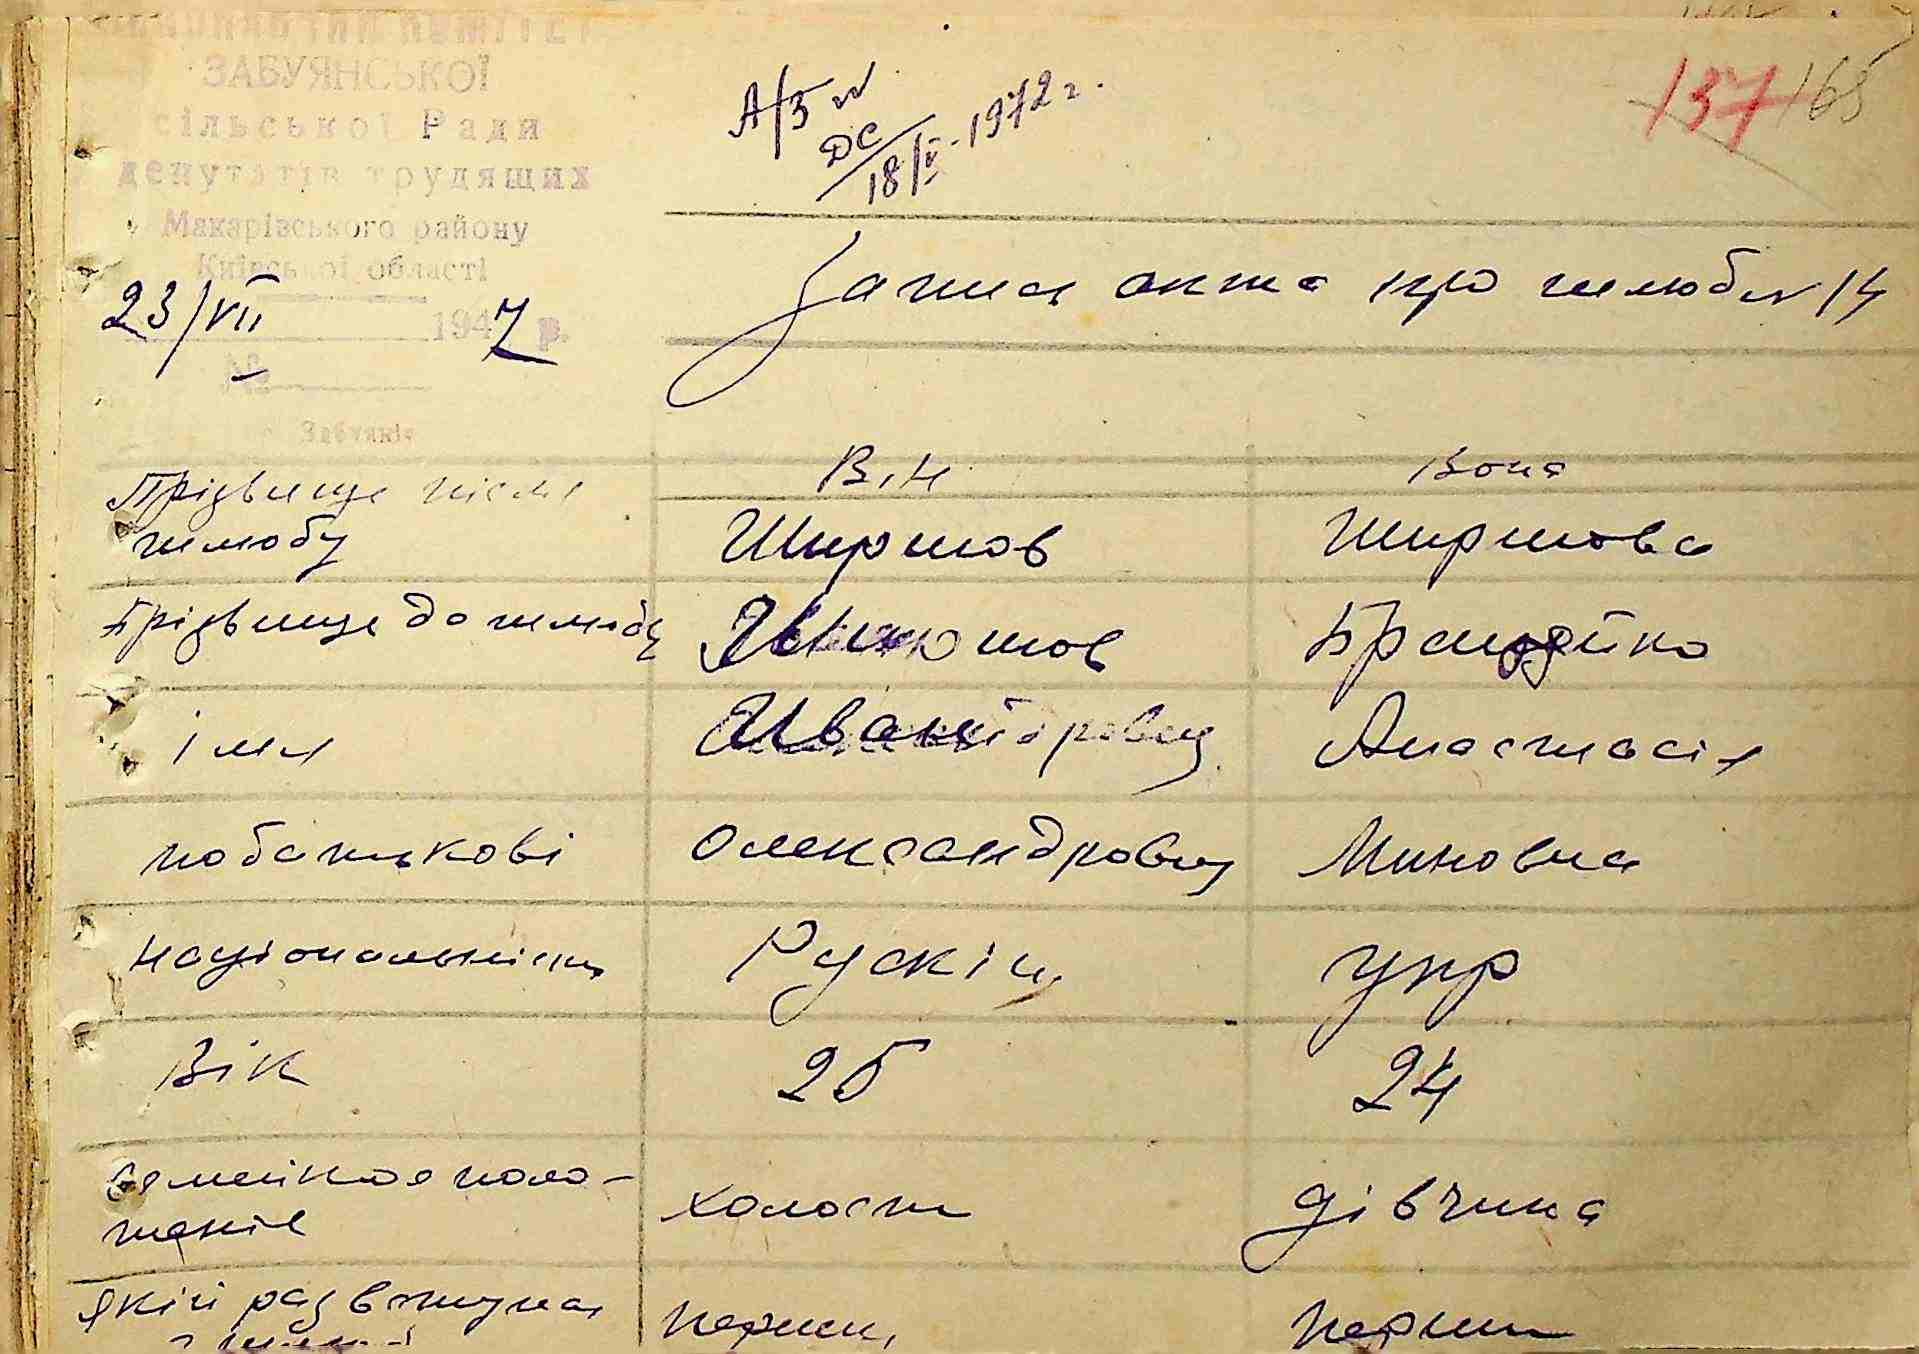 ЗАБУЯНСЬКОЇ
сільської Ради
депутатів трудящих
Макарівського району
Київської області
23/VII 1947 р.
№
А/З №
ДС
18/V-1972 г.
137 165
Запис акта про шлюб № 14
Він Вона
Прізвище після
шлюбу Ширшов Ширшова
Прізвище до шлюбу
імя Иван Анастасія
по батькові Олександрович Миновна
національність Рускій укр
Вік 25 24
семейное поло-
женіе холост дівчина
Який раз вступає
перший перший